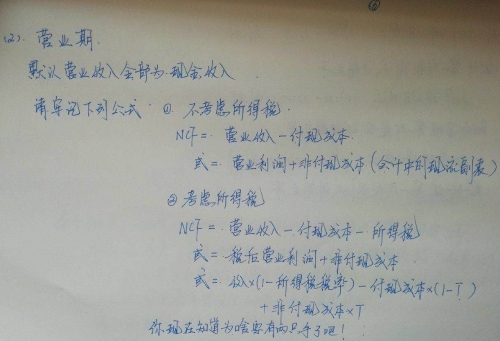 ⑥
(2). 营业期.
默认营业收入全部为现金收入.
请牢记下列公式 ① 不考虑所得税.
NCF= 营业收入-付现成本.
或= 营业利润+非付现成本(会计中的现流副表)
② 考虑所得税
NCF= 营业收入-付现成本-所得税
或= 税后营业利润+非付现成本.
或= 收入×(1-所得税税率)-付现成本×(1-T)
+非付现成本×T
你现在知道为啥要有两只手了吧!